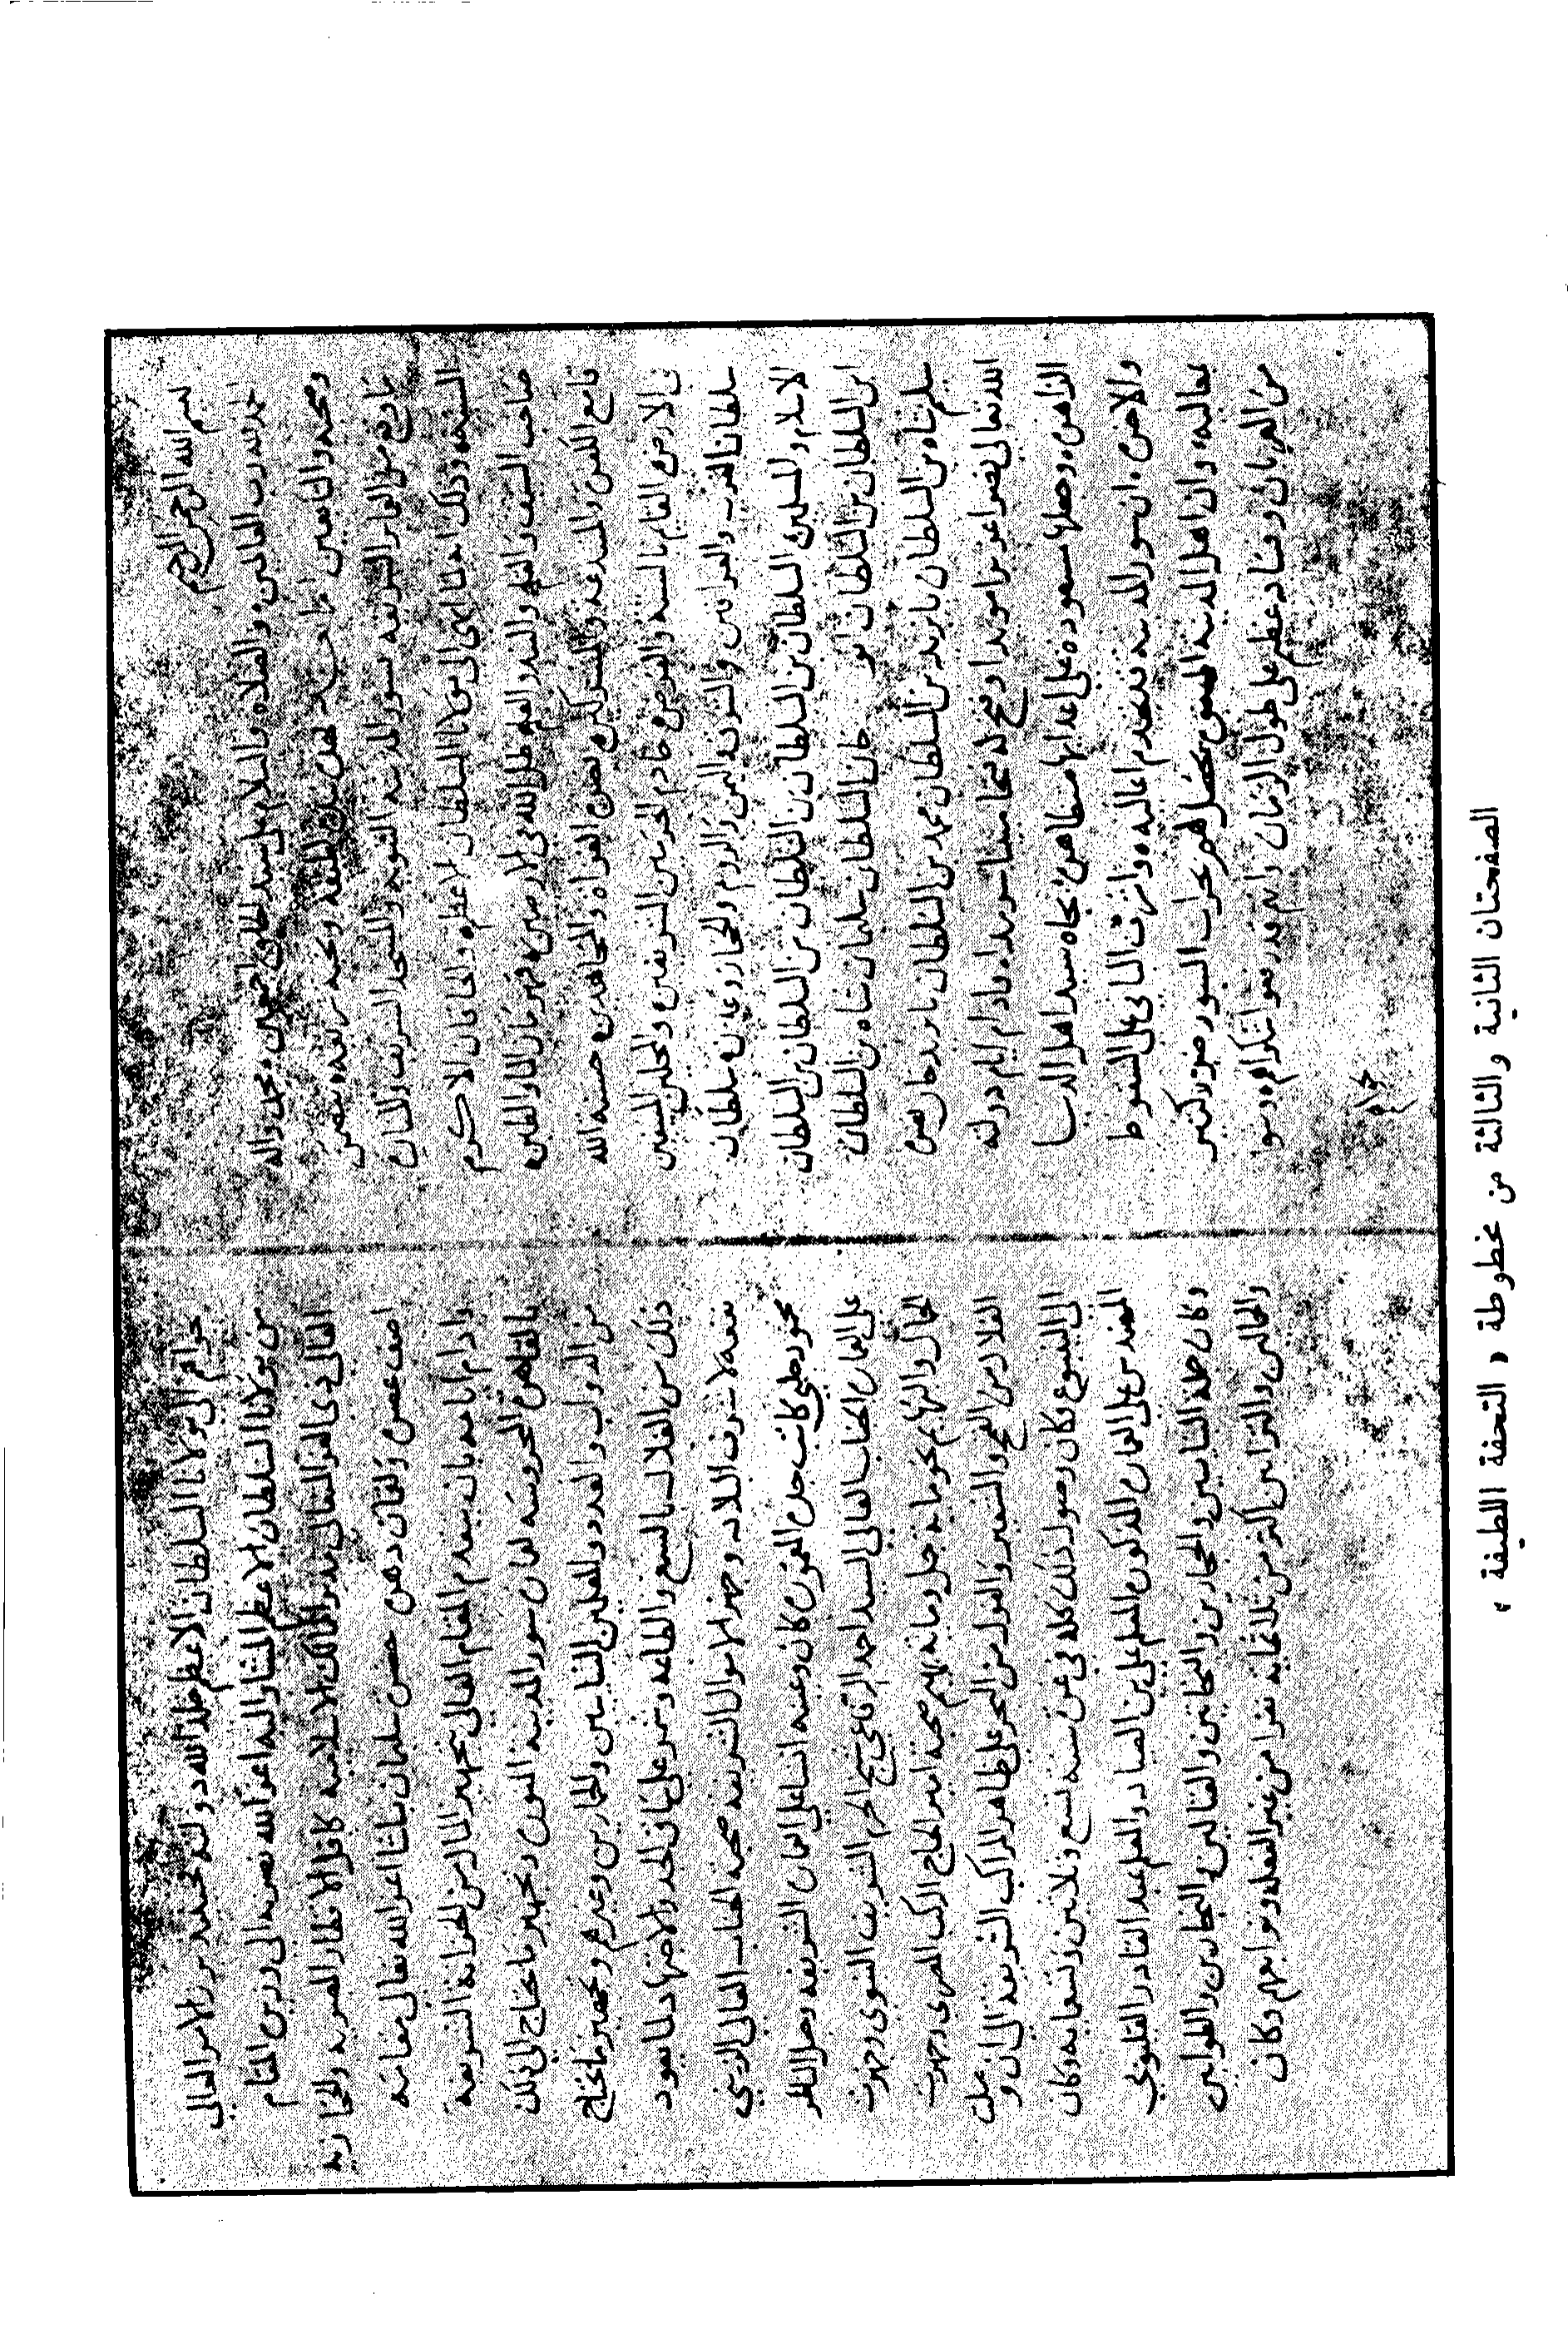 بسم الله الرحمن الرحيم
الحمد لله رب العالمين والصلاة والسلام على سيد الخلق اجمعين محمد واله
وصحبه والتابعين اما بعد فهذه نبذه لطيفه وتحفه
تاريخ من العماره الشريفه بسور المدينه النبويه والمسجد الشريف والمنارة
السنيه وذلك لما انهى الى مولانا السلطان الاعظم والخاقان الاكرم
صاحب السيف والقلم والبند والعلم ظل الله في الارضين قهرمان الماء والطين
قامع الكفره والمبتدعه والمشركين نصرة الغزاة والمجاهدين حسنة الله
في الارض القايم بالسنه والفرض خادم الحرمين الشريفين والمحلين المنيفين
سلطان العرب والعراقين والشرق واليمن والروم والحجاز وعدن سلطان
الاسلام والمسلمين السلطان بن السلطان بن السلطان بن السلطان بن السلطان
ابن السلطان بن السلطان ابو السلطان سليمان شاه بن السلطان
سليم شاه بن السلطان بايزيد بن السلطان محمد بن السلطان مراد خان نصره
الله تعالى نصرا عزيزا مويدا وفتح له فتحا مبينا سرمدا وادام ايام دولته
الزاهره وجعلها مسعوده على اعدايها متظاهره بجاه سيد اهل الدنيا
والاخره ان سور المدينه تهدم اعاليه واشرف الباقي على السقوط
غالبه وان اهل المدينه يحصل لهم بخراب السور ضرر كبير
من العربان وفساد عظيم على طول الزمان وانهم قد رفعوا شكواهم وسو
حالهم
حالهم الى مولانا السلطان الاعظم خلد الله دولته فحينئذ برز الامر العالي
من مولانا السلطان الاعظم المشار اليه اعز الله نصره الى وزيره المقام
العالي ذي القدر المتعالي مدبر الممالك الاسلاميه كافل الاقطار المصريه والحجازيه
اصف عصره ولقمان دهره حضرة سليمان باشا اعز الله تعالى مقامه
وادام ايامه بان يتقدم المقام العالي بتجهيز المال من الخزانة الشريفة
بالقاهره المحروسه لعمارة سور المدينة المنوره وتجهيز ما يحتاج اليه ذلك
من الدواب والعدد والمعلمين البنايين والحجارين وغيرهم وتحضير ما يحتاج
ذلك من الغلال بالسمع والطاعه وشمر على ساق الجد والاجتهاد لما يعود
نفعه لاشرف البلاد وجهز الاموال الشريفه صحبة الجناب العالي الزيني
محمود جلبي كاتب جدة المعموره كان وعينه امينا على العماره الشريفه وجعل الناظر
على العماره الجناب العالي السيد احمد الرفاعي شيخ الحرم الشريف النبوي وجهزت
الجمال والبهايم نحو ماية جمل وماية بهيم صحبة امير الحاج الركب المصري وجهزت
الغلال من القمح والشعير والفول من البحر على ظاهر المراكب الشريفة الى ان وصلت
الى الينبوع وكان وصول ذلك كله في غرة سنة تسع وثلاثين وتسعمايه وكان
المهندس على العماره المذكوره المعلم علي بن الصياد والمعلم عبد القادر القليوبي
وكان جملة البنايين والحجارين والنحاتين والعتالين والنجارين والطوابين
والجمالين والترابين اكثر من ثلاثماية نفرا من غير الفعله وتوابعهم وكان
الصفحتان الثانية والثالثة من مخطوطة « التحفة اللطيفة »